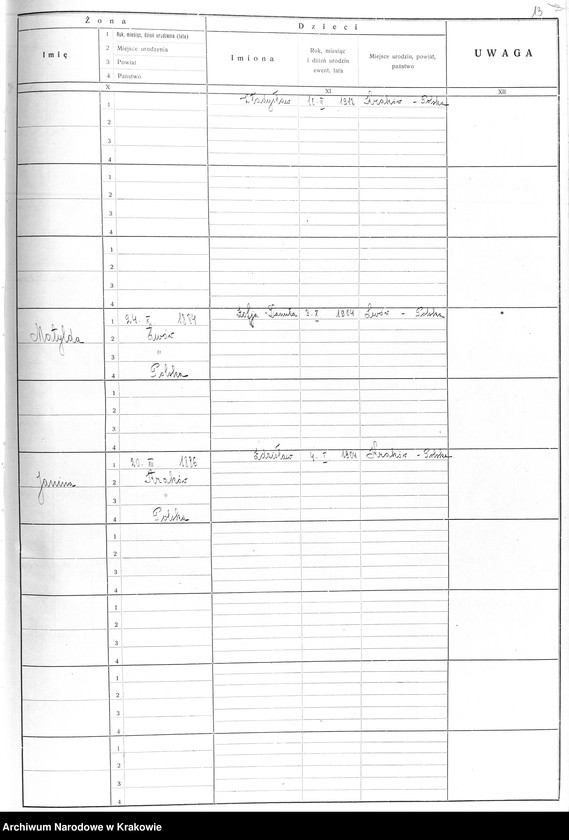 13
Żona
Dzieci
UWAGA
Imię
1 Rok, miesiąc, dzień urodzenia (lata)
2 Miejsce urodzenia
3 Powiat
4 Państwo
Imiona
Rok, miesiąc
i dzień urodzin
ewent. lata
Miejsce urodzin, powiat,
państwo
X
XI
XII
1 Kraków - Polska
2
3
4
1
2
3
4
1
2
3
4
Matylda
1 24. 1884 Zofja Lwów - Polska
2 Lwów
3 "
4 Polska
1
2
3
4
Janina
1 20. Zdzisław Kraków - Polska
2 Kraków
3 "
4 Polska
1
2
3
4
1
2
3
4
1
2
3
4
1
2
3
4
Archiwum Narodowe w Krakowie